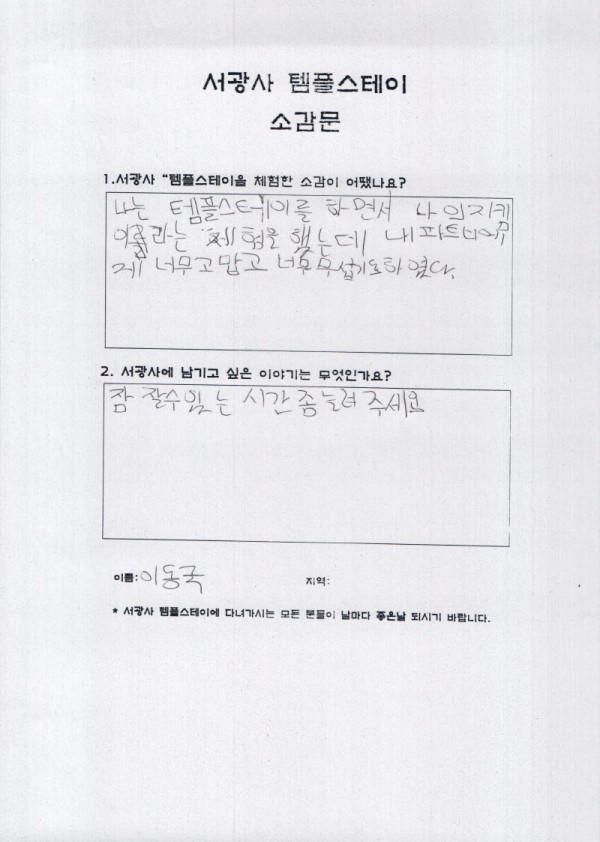 서광사 템플스테이
소감문
1.서광사 "템플스테이을 체험한 소감이 어땠나요?
나는 템플스테이를 하면서 나의지킴
이움라는 체험을 했는데 내파트너에
게 너무고맙고 너무무섭기도하였다.
2. 서광사에 남기고 싶은 이야기는 무엇인가요?
참 잘수있는 시간좀늘려 주세요
이름: 이동국 지역:
* 서광사 템플스테이에 다녀가시는 모든 분들이 날마다 좋은날 되시기 바랍니다.